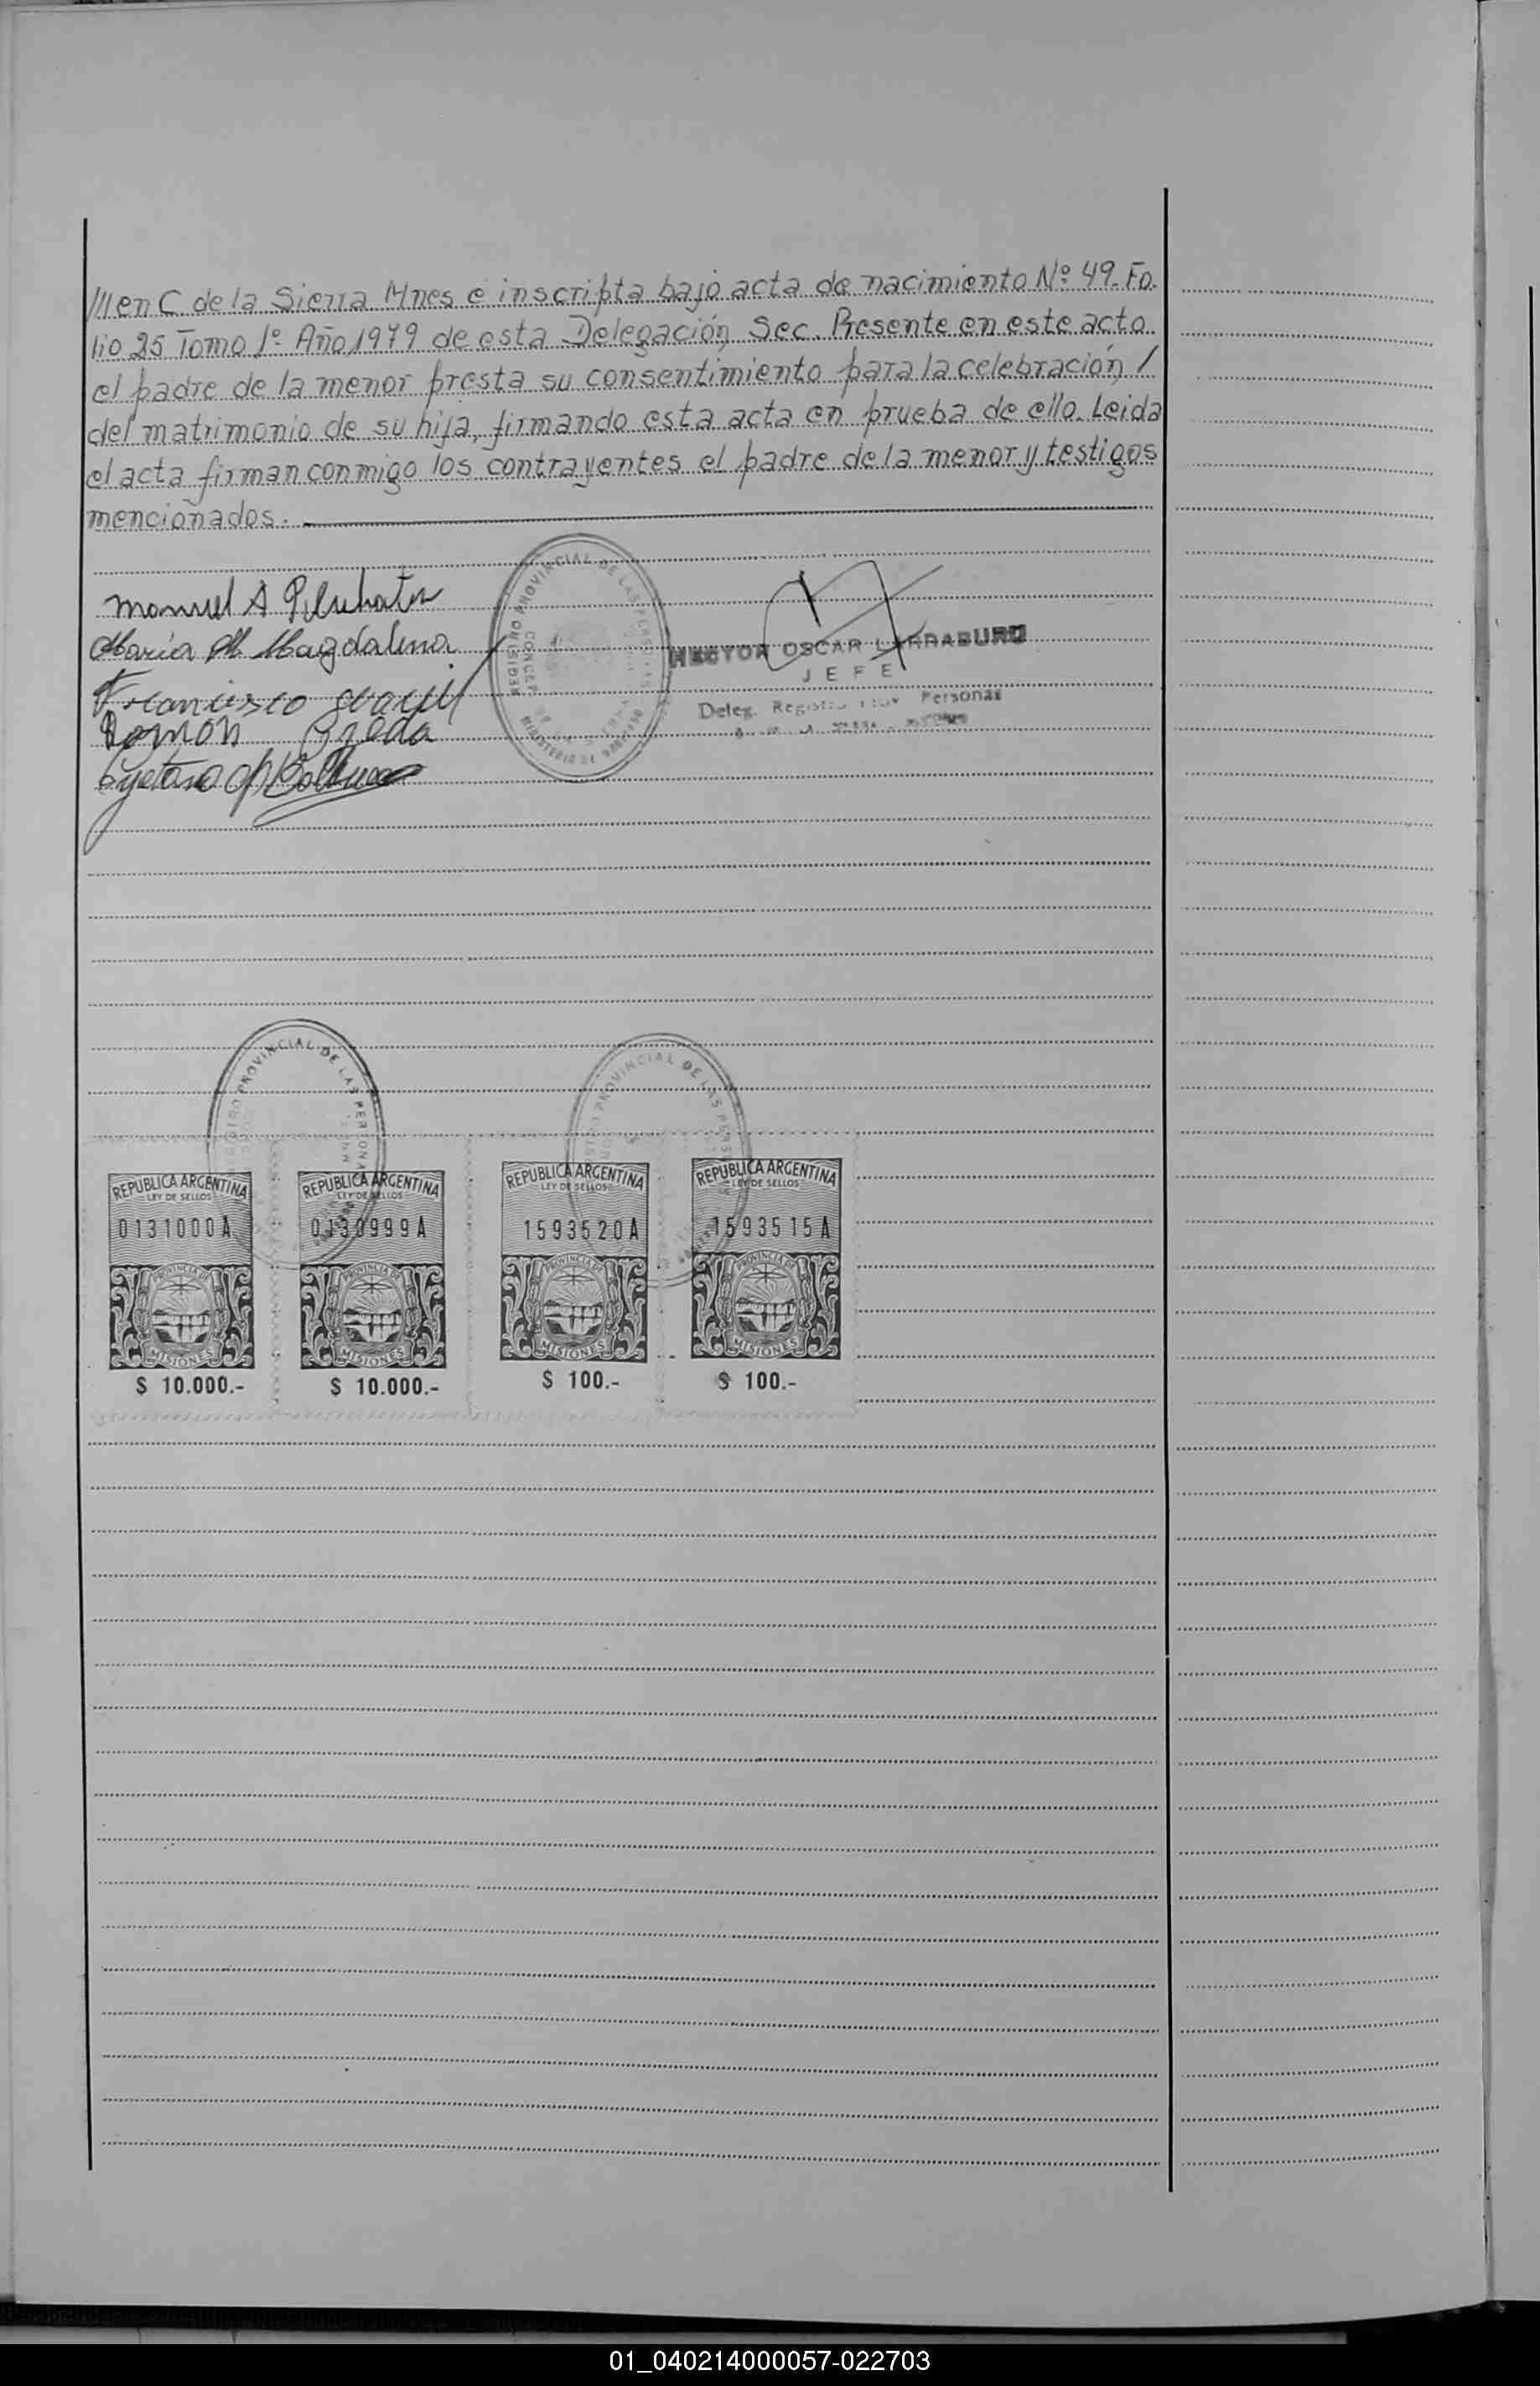 ///en C. de la Sierra Mnes e inscripta bajo acta de nacimiento Nº 49. Fo.
lio 25 Tomo 1º Año 1979 de esta Delegación Sec. Presente en este acto
el padre de la menor presta su consentimiento para la celebración /
del matrimonio de su hija, firmando esta acta en prueba de ello. Leida
el acta firman conmigo los contrayentes el padre de la menor y testigos
mencionados.
Manuel A
Maria M. Magdalena
Francisco
Ramón Ojeda
Cayetano
REGISTRO PROVINCIAL DE LAS PERSONAS
HECTOR OSCAR LARRABURO
JEFE
Deleg. Registro Prov Personas
PROVINCIAL DE LAS PERSONAS
PROVINCIAL DE LAS
REPUBLICA ARGENTINA
LEY DE SELLOS
0131000A
PROVINCIA DE
MISIONES
$ 10.000.-
REPUBLICA ARGENTINA
LEY DE SELLOS
0130999A
PROVINCIA DE
MISIONES
$ 10.000.-
REPUBLICA ARGENTINA
LEY DE SELLOS
1593520A
PROVINCIA DE
MISIONES
$ 100.-
REPUBLICA ARGENTINA
LEY DE SELLOS
1593515A
PROVINCIA DE
MISIONES
$ 100.-
01_040214000057-022703